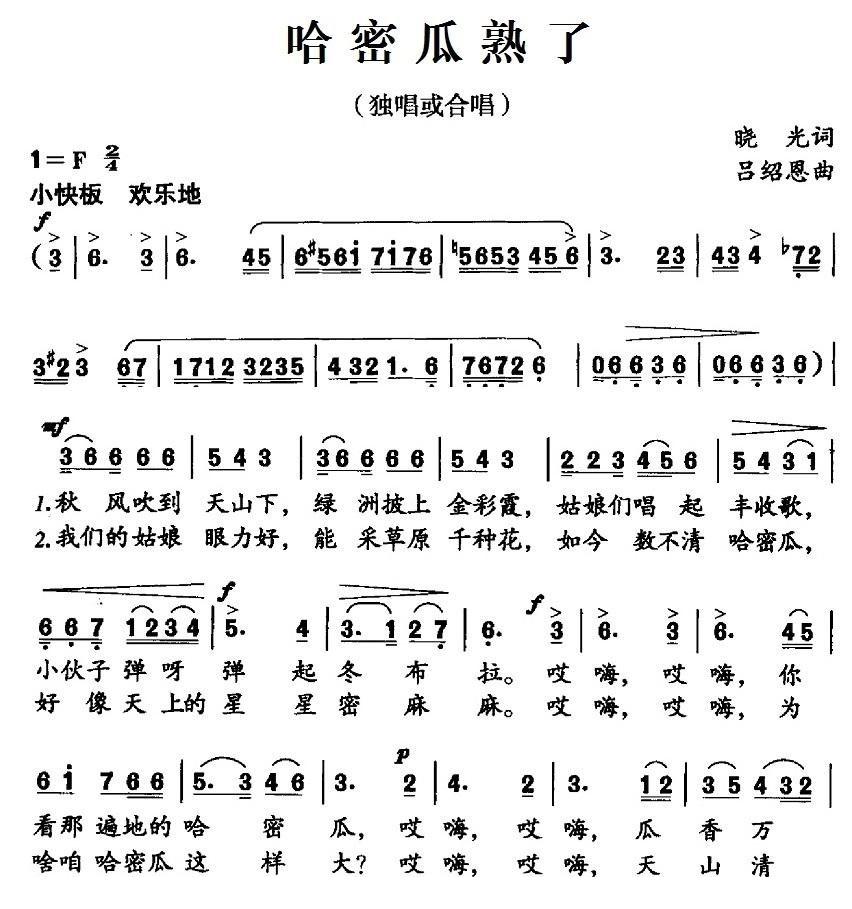 哈密瓜熟了
（独唱或合唱）
晓 光词
1=F 2/4
吕绍恩曲
小快板 欢乐地
f
(3 | 6. 3 | 6. 45 | 6#561̇ 71̇76 | ♮5653 456 | 3. 23 | 434 ♭72 |
3#23 67 | 1712 3235 | 4321. 6 | 76726 | 06636 | 06636) |
mf
36666 | 543 | 36666 | 543 | 223456 | 5431 |
1.秋 风吹到 天山下，绿 洲披上 金彩霞，姑娘们唱 起 丰收歌，
2.我们的姑娘 眼力好，能 采草原 千种花，如今 数不清 哈密瓜，
f f
667 1234 | 5. 4 | 3. 1 27 | 6. 3 | 6. 3 | 6. 45 |
小伙子弹呀 弹 起冬 布 拉。哎 嗨，哎 嗨，你
好 像天上的星 星密 麻 麻。哎 嗨，哎 嗨，为
p
61̇ 766 | 5. 3 46 | 3. 2 | 4. 2 | 3. 12 | 35 432 |
看那 遍地的哈 密 瓜，哎 嗨，哎 嗨，瓜 香万
啥咱 哈密瓜这 样 大？哎 嗨，哎 嗨，天 山清